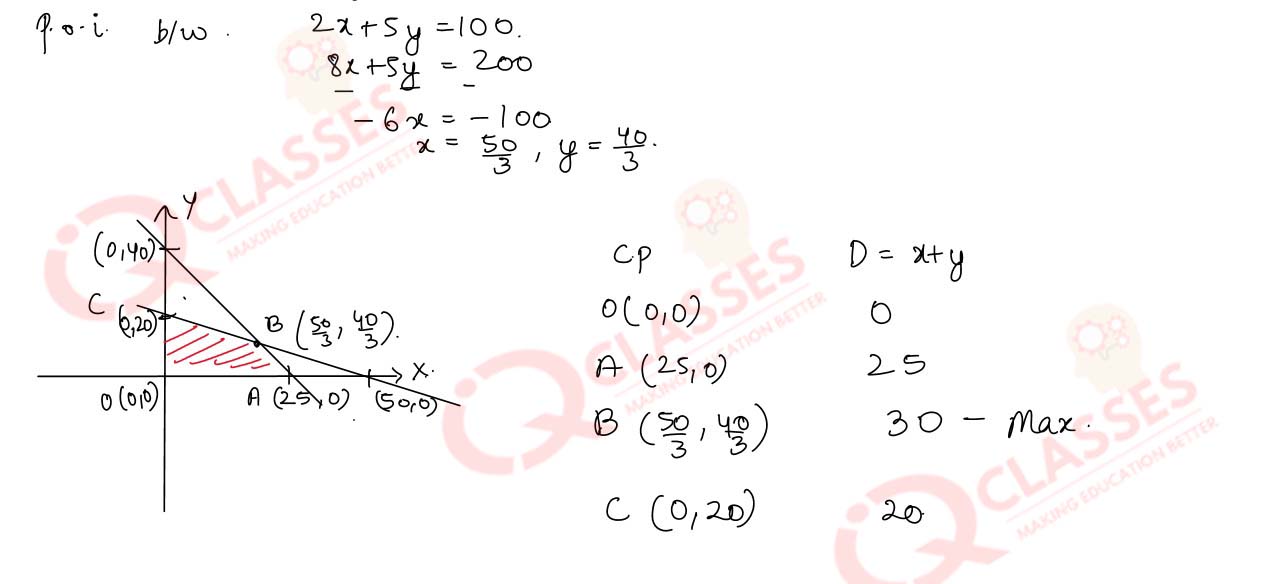 P.o.i. b/w. 2x+5y=100.
8x+5y = 200
- -
-6x = -100
x = 50/3, y = 40/3.
Y
(0,40)
C
(0,20)
B (50/3, 40/3).
X.
O(0,0)
A (25,0)
(50,0)
C.P D = x+y
O(0,0) 0
A (25,0) 25
B (50/3, 40/3) 30 - Max.
C (0,20) 20
IQ CLASSES
MAKING EDUCATION BETTER
IQ CLASSES
MAKING EDUCATION BETTER
IQ CLASSES
MAKING EDUCATION BETTER